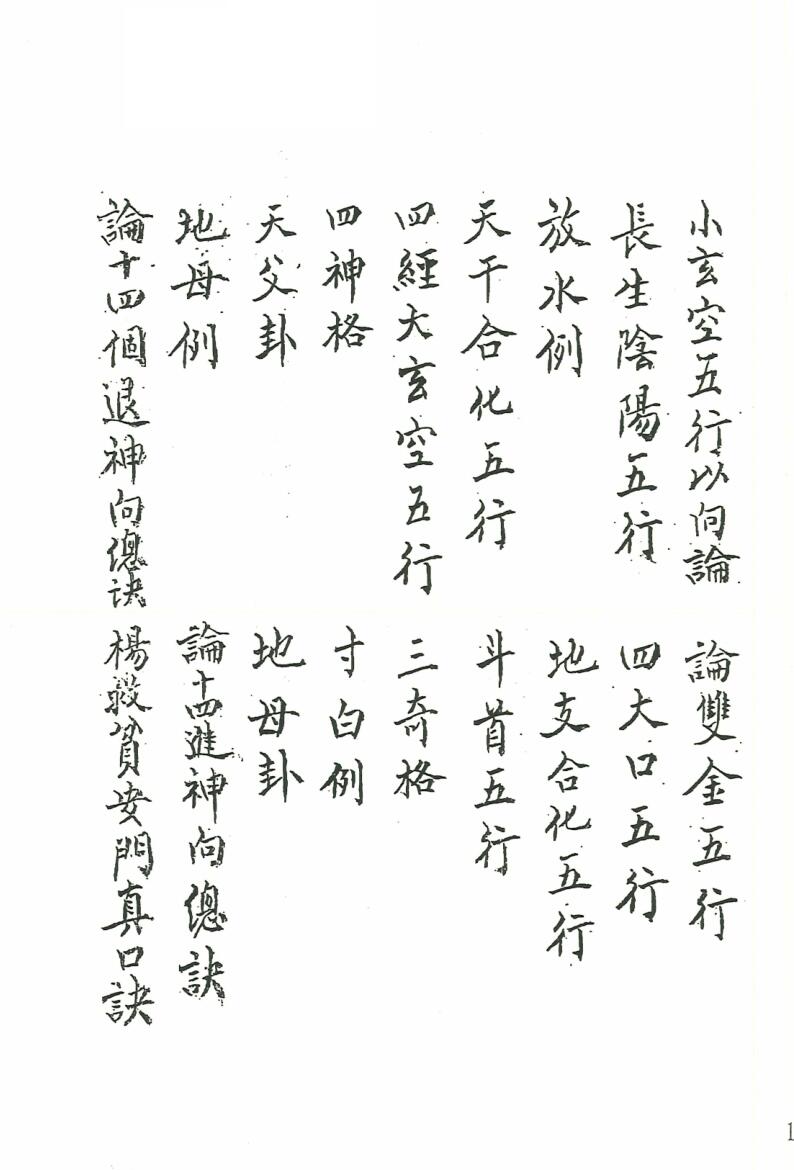 小玄空五行以向論
論雙金五行
長生陰陽五行
四大口五行
放水例
地支合化五行
天干合化五行
斗首五行
四經大玄空五行
三奇格
四神格
寸白例
天父卦
地母卦
地母例
論十四進神向總訣
論十四個退神向總訣
楊救貧安門真口訣
1